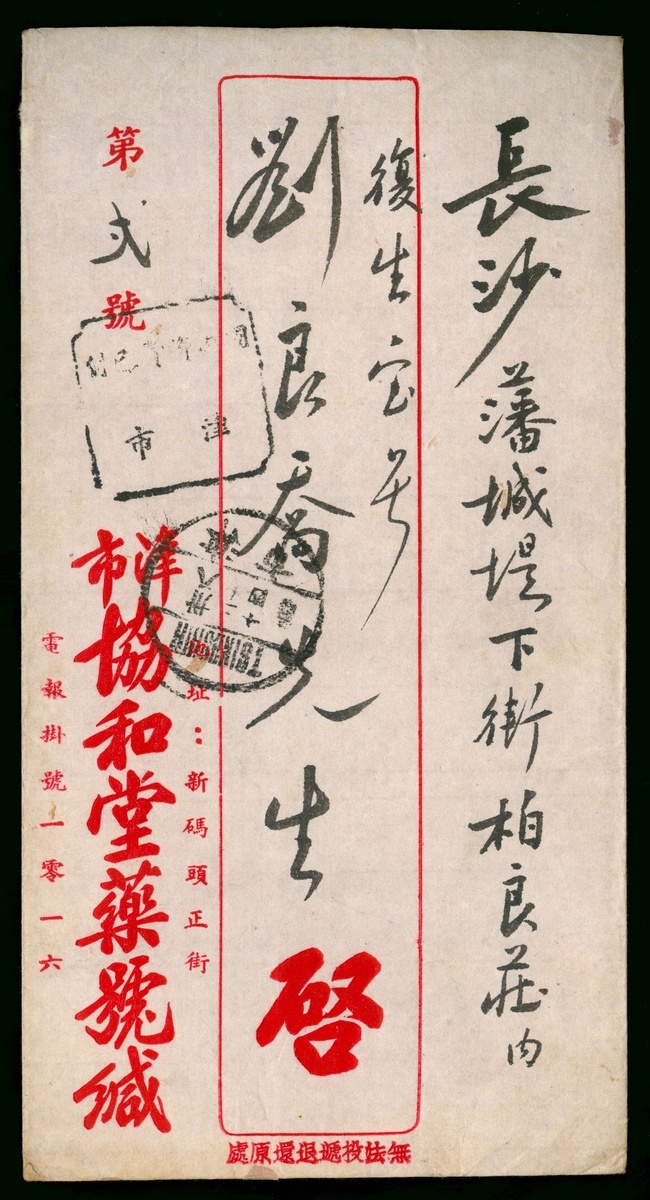 長沙藩城堤下街柏良莊內
復生宝号
劉良喬先生啓
第弍號
津市
地址：新碼頭正街
津市協和堂藥號緘
電報掛號一零一六
TSINGSHIH
無法投遞退還原處